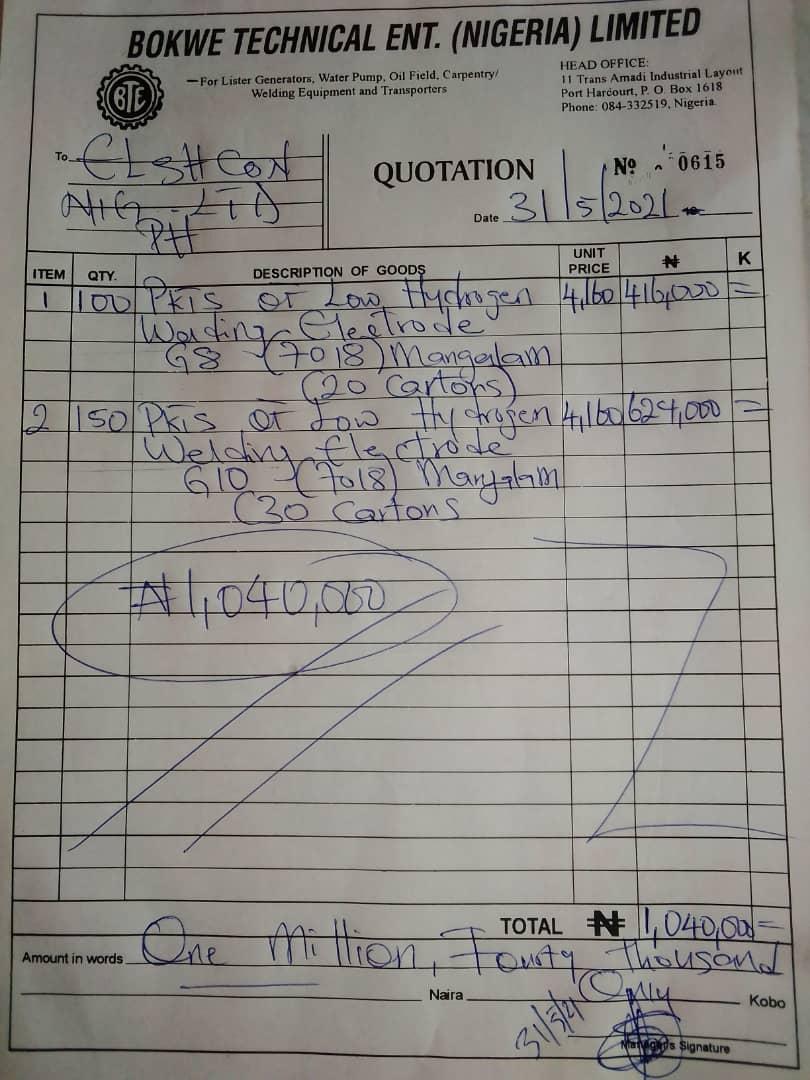 BOKWE TECHNICAL ENT. (NIGERIA) LIMITED
BTE
—For Lister Generators, Water Pump, Oil Field, Carpentry/
Welding Equipment and Transporters
HEAD OFFICE:
11 Trans Amadi Industrial Layout
Port Harcourt, P. O. Box 1618
Phone: 084-332519, Nigeria.
To ELSHCON
NIG. LTD
PH
QUOTATION
No 0615
Date 31/5/2021
ITEM QTY. DESCRIPTION OF GOODS UNIT PRICE ₦ K
1 100 Pkts of Low Hydrogen 4,160 416,000 =
Welding Electrode
G8 - (7018) Mangalam
(20 Cartons)
2 150 Pkts of Low Hydrogen 4,160 624,000 =
Welding Electrode
G10 - (7018) Mangalam
(30 Cartons
₦1,040,000
TOTAL ₦ 1,040,000=
Amount in words One Million, Fourty Thousand
Naira Only Kobo
31/5/21
Manager's Signature